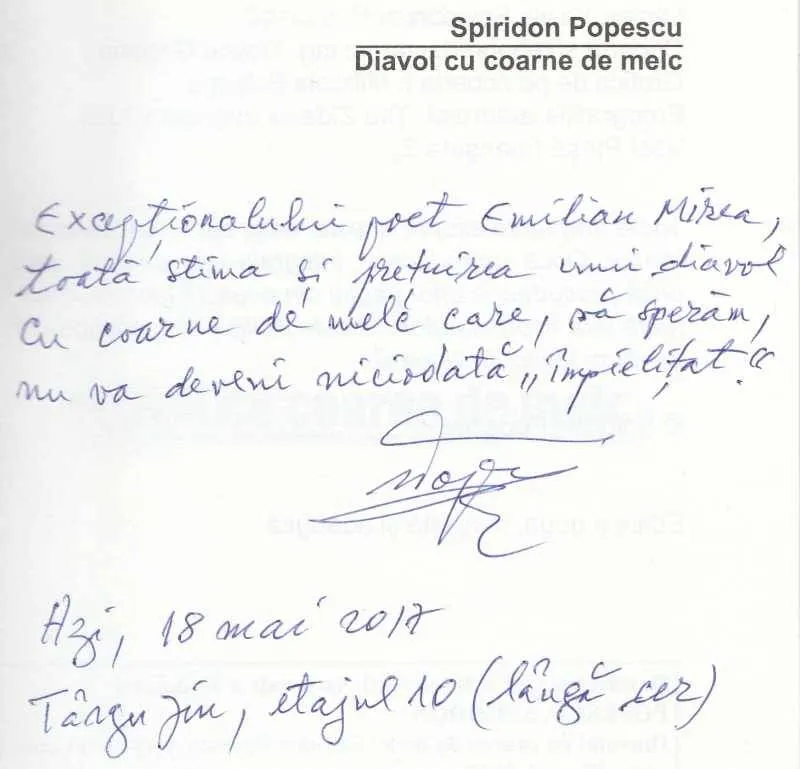 Spiridon Popescu
Diavol cu coarne de melc
Excepționalului poet Emilian Mirea,
toată stima și prețuirea unui diavol
cu coarne de melc care, să sperăm,
nu va deveni niciodată „împielițat“.
Azi, 18 mai 2017
Târgu Jiu, etajul 10 (lângă cer)